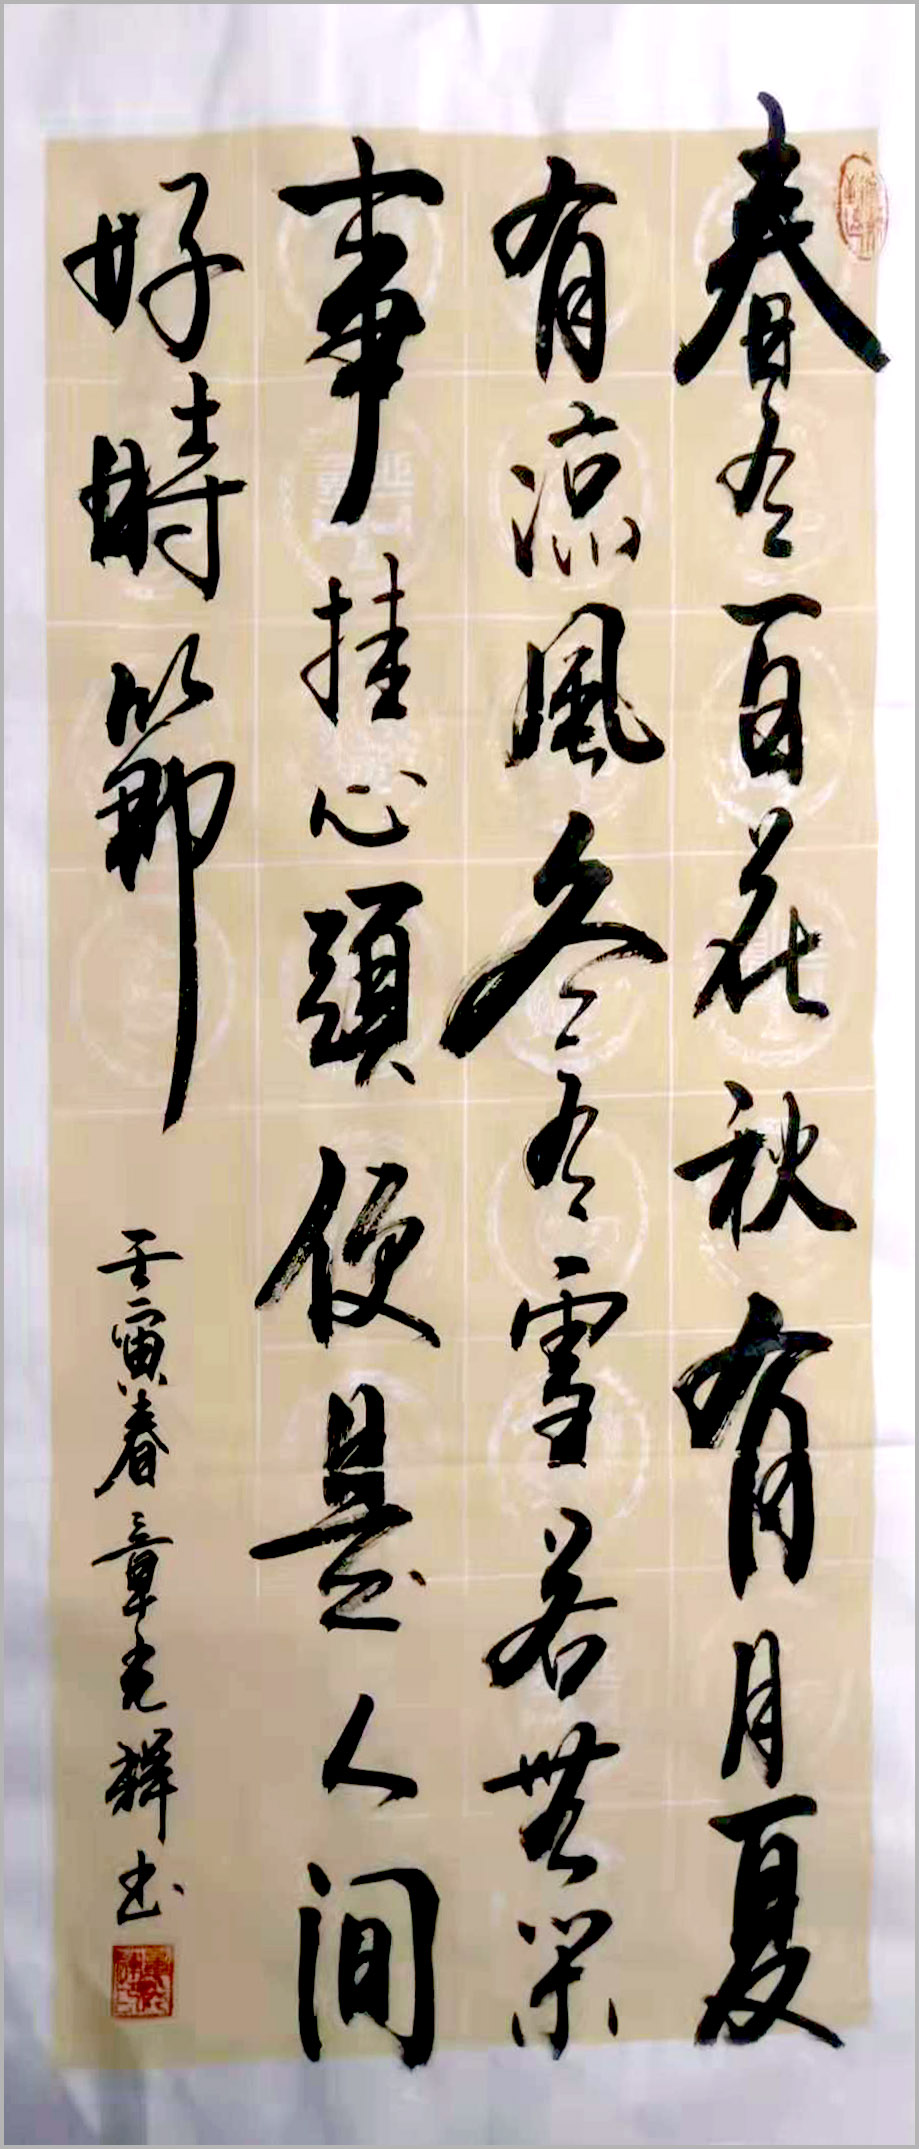 春有百花秋有月夏
有凉風冬有雪若無閑
事挂心頭便是人間
好時節
壬寅春章光輝書